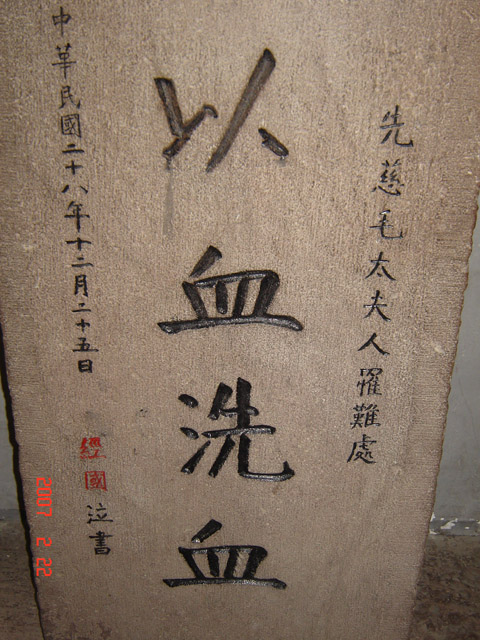 先慈毛太夫人罹難處
以血洗血
中華民國二十八年十二月二十五日
經國 泣書
2007 2 22